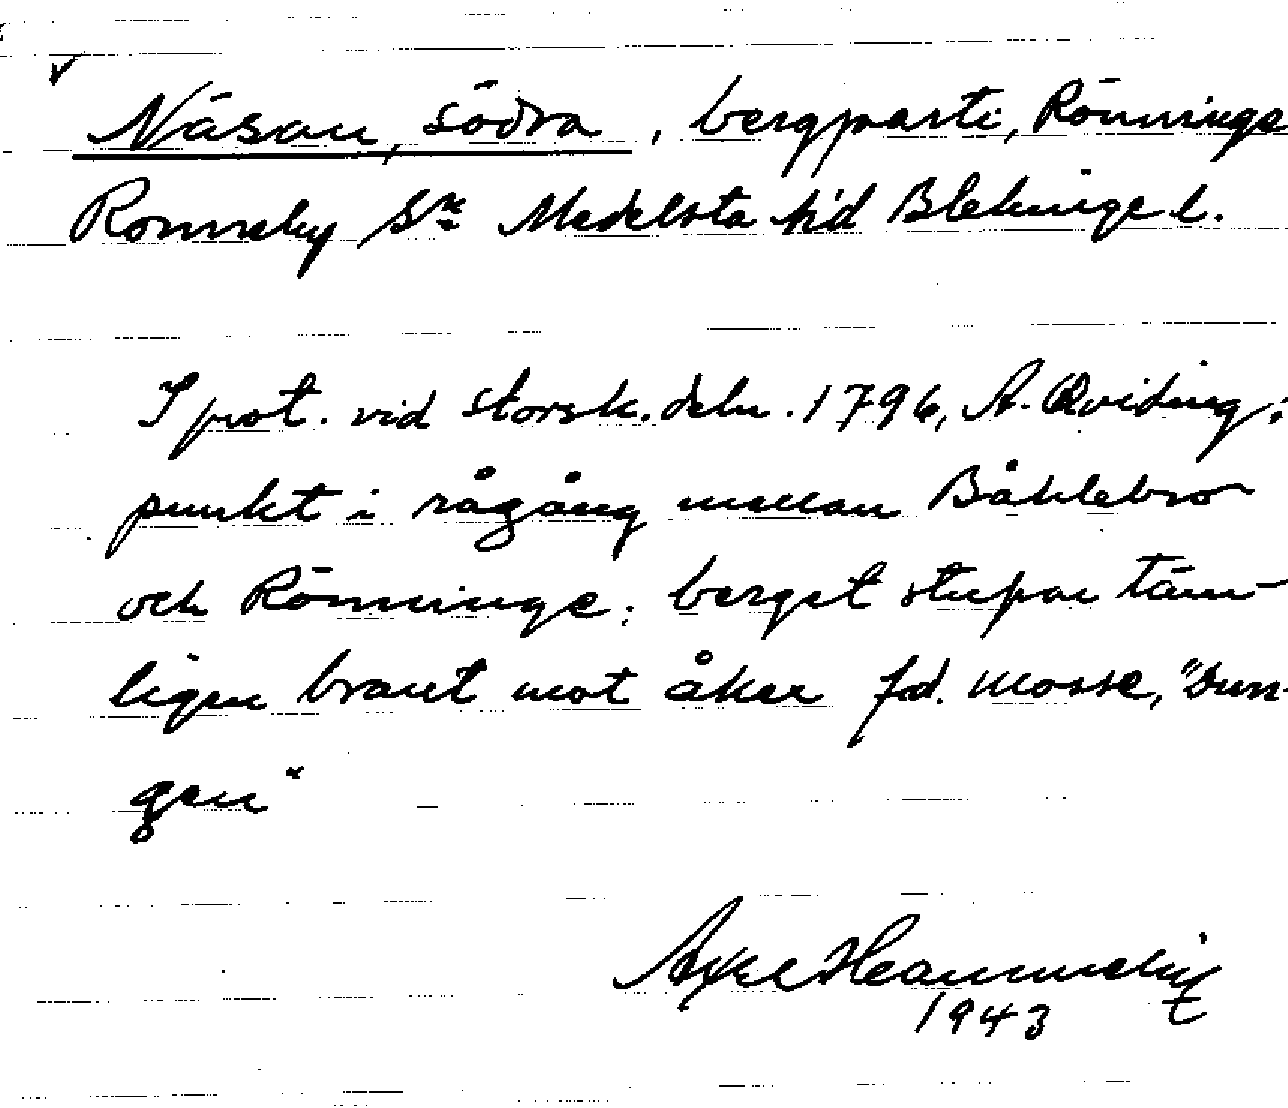 Näsan, södra, bergparti, Rönninge
Ronneby Sn Medelsta hd Blekinge l.
I prot. vid storsk. deln. 1796, A. Qviding,
punkt i rågång mellan Båhlebro
och Rönninge; berget stupar täm-
ligen brant mot åker fd. mosse, "Dun-
gen"
Axel
1943